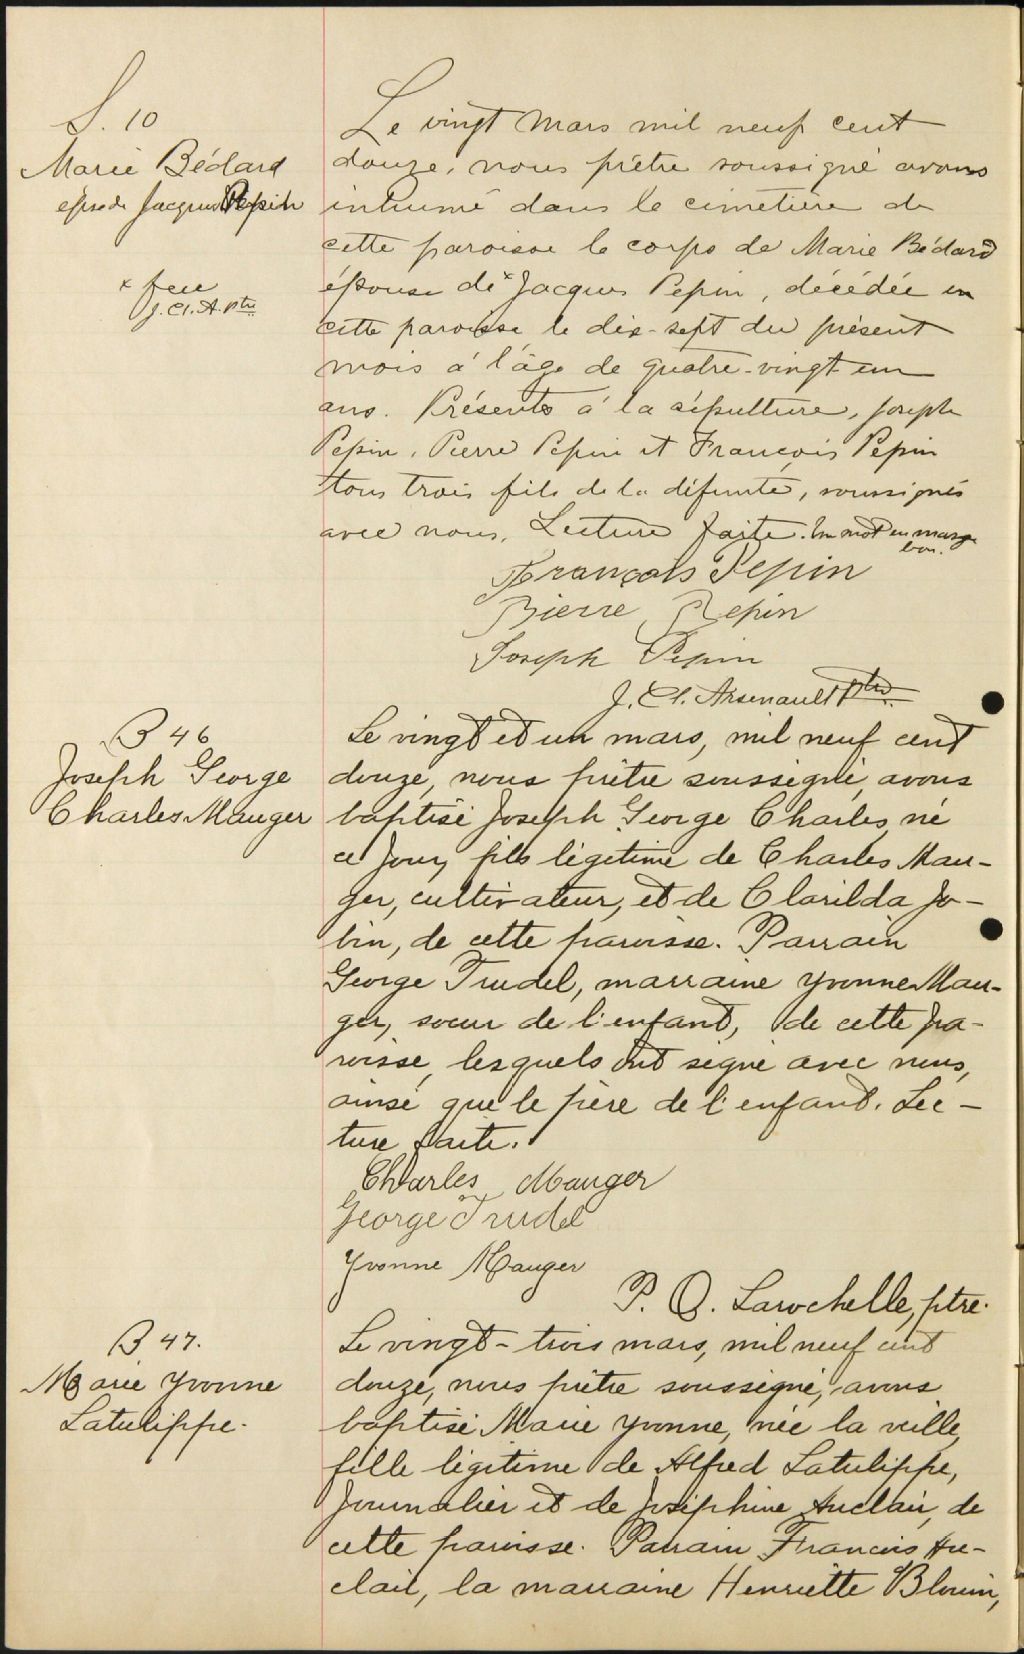 S. 10
Marie Bédard
épse de Jacques Pepin
x feu
J. Cl. A. Ptre
Le vingt mars mil neuf cent
douze, nous prêtre soussigné avons
inhumé dans le cimetière de
cette paroisse le corps de Marie Bédard
épouse de x Jacques Pepin, décédée en
cette paroisse le dix-sept du présent
mois à l'âge de quatre-vingt un
ans. Présents à la sépulture, Joseph
Pepin, Pierre Pepin et François Pepin
tous trois fils de la défunte, soussignés
avec nous. Lecture faite. Un mot en marge
bon.
François Pepin
Pierre Pepin
Joseph Pepin
J. Cl. Arsenault Ptre
B 46
Joseph George
Charles Mauger
Le vingt et un mars, mil neuf cent
douze, nous prêtre soussigné, avons
baptisé Joseph George Charles, né
ce jour, fils légitime de Charles Mau-
ger, cultivateur, et de Clarilda Jo-
bin, de cette paroisse. Parrain
George Trudel, marraine Yvonne Mau-
ger, soeur de l'enfant, de cette pa-
roisse, lesquels ont signé avec nous,
ainsi que le père de l'enfant. Lec-
ture faite.
Charles Mauger
George Trudel
Yvonne Mauger
P. O. Larochelle, ptre.
B 47.
Marie Yvonne
Latulippe.
Le vingt-trois mars, mil neuf cent
douze, nous prêtre soussigné, avons
baptisé Marie Yvonne, née la veille,
fille légitime de Alfred Latulippe,
journalier et de Joséphine Auclair, de
cette paroisse. Parrain François Au-
clair, la marraine Henriette Blouin,